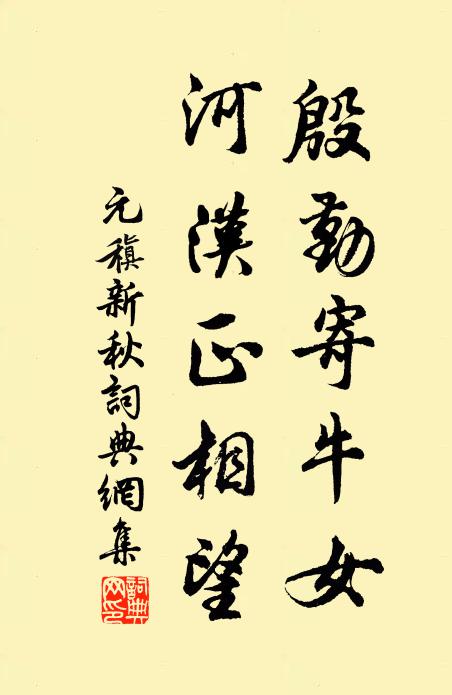 殷勤寄牛女
河漢正相望
元稹新秋詞典網集
詞典網印